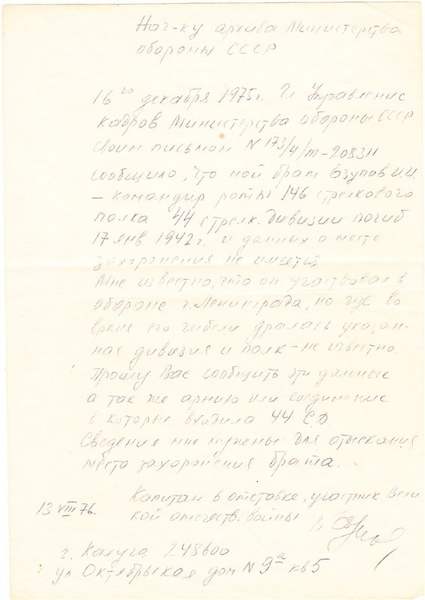 Нач-ку архива Министерства
обороны СССР
16го декабря 1975г. Гл Управление
кадров Министерства обороны СССР
своим письмом N 173/4/т-2083н
сообщило, что мой брат
- командир роты 146 стрелкового
полка 44 стрелк. дивизии погиб
17 янв 1942г. и данных о месте
захоронения не имеется
Мне известно, что он участвовал в
обороне г. Ленинграда, но где во
время его гибели дралась указан-
ная дивизия и полк - не известно.
Прошу Вас сообщить эти данные
а так же армию или соединение
в которые входила 44 СД
Сведения мне нужены для отыскания
места захоронения брата.
Капитан в отставке, участник Вели
кой отечеств. войны
13 VIII 76.
г. Калуга 248600
ул Октябрьская дом N 9а кв 5